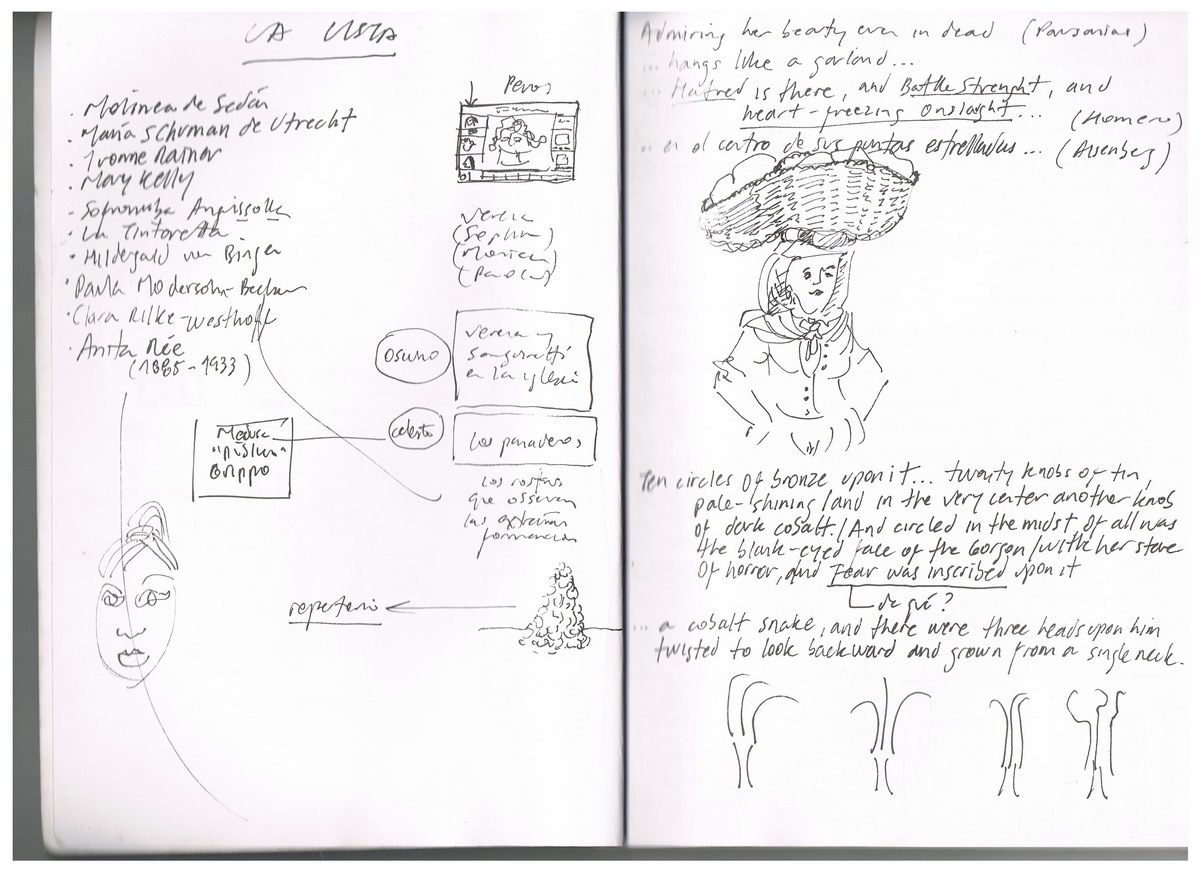 LA LISTA
· Molinea de Sedán
· Maria Schurman de Utrecht
· Ivonne Rainer
· Mary Kelly
· Sofronisba Angissolla
· La Tintoretta
· Hildegald von Bingen
· Paula Modersohn-Becker
· Clara Rilke-Westhoff
· Anita Rée
(1885-1933)
Medusa
repertorio
oscuro
en la iglesia
celeste
Los panaderos
Los rostros
que observan
las extrañas
formaciones
Admiring her beauty even in dead (Pausanias)
... hangs like a garland...
... Hatred is there, and Battle Strenght, and
heart-freezing Onslaght... (Homero)
... en el centro de sus puntas estrelladas...
Ten circles of bronze upon it... twenty knobs of tin,
pale-shining/and in the very center another knob
of dark cobalt./And circled in the midst of all was
the blank-eyed face of the Gorgon/with her stare
of horror, and Fear was inscribed upon it
de qué?
... a cobalt snake, and there were three heads upon him
twisted to look backward and grown from a single neck.